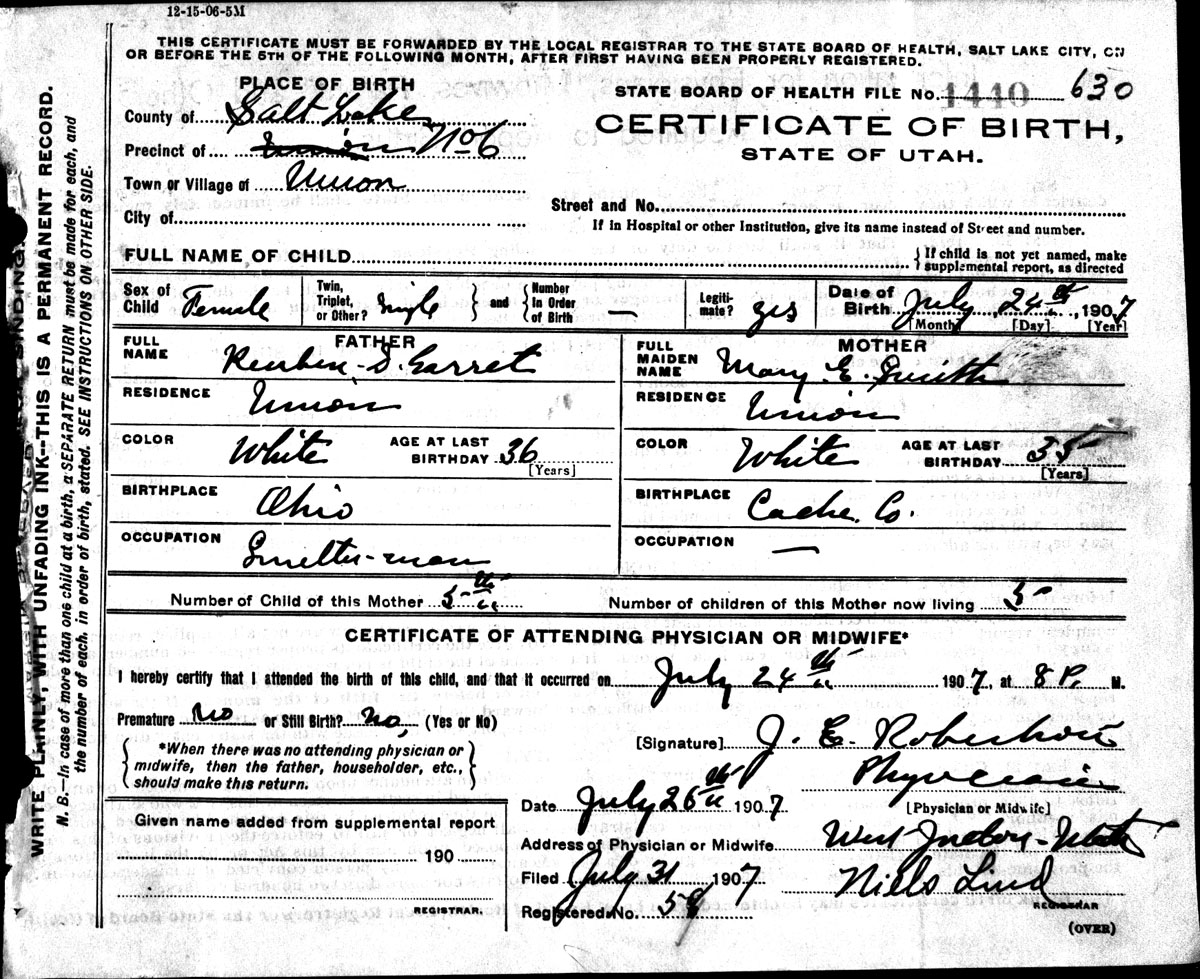 12-15-06-5M
THIS CERTIFICATE MUST BE FORWARDED BY THE LOCAL REGISTRAR TO THE STATE BOARD OF HEALTH, SALT LAKE CITY, ON
OR BEFORE THE 5TH OF THE FOLLOWING MONTH, AFTER FIRST HAVING BEEN PROPERLY REGISTERED.
PLACE OF BIRTH
County of Salt Lake
Precinct of Union No 6
Town or Village of Union
City of
STATE BOARD OF HEALTH FILE No. 1440 630
CERTIFICATE OF BIRTH,
STATE OF UTAH.
Street and No.
If in Hospital or other Institution, give its name instead of Street and number.
FULL NAME OF CHILD
{ If child is not yet named, make
supplemental report, as directed
Sex of Child Female
Twin, Triplet, or Other? Single } and { Number In Order of Birth —
Legiti- mate? yes
Date of Birth July 24th, 1907
[Month] [Day] [Year]
FATHER
FULL NAME Reuben S. Garret
RESIDENCE Union
COLOR White AGE AT LAST BIRTHDAY 36
[Years]
BIRTHPLACE Ohio
OCCUPATION Smelter-man
MOTHER
FULL MAIDEN NAME Mary E. Smith
RESIDENCE Union
COLOR White AGE AT LAST BIRTHDAY 35
[Years]
BIRTHPLACE Cache Co.
OCCUPATION —
Number of Child of this Mother 5th Number of children of this Mother now living 5
CERTIFICATE OF ATTENDING PHYSICIAN OR MIDWIFE*
I hereby certify that I attended the birth of this child, and that it occurred on July 24th 1907, at 8 P. M.
Premature no or Still Birth? no, (Yes or No)
{ *When there was no attending physician or
midwife, then the father, householder, etc.,
should make this return. }
[Signature] J. E. Robertson
Physician
[Physician or Midwife]
Date July 26th 1907
Address of Physician or Midwife West Jordan-Utah
Filed July 31 1907 Niels Lind
REGISTRAR
Registered No. 58
(OVER)
Given name added from supplemental report
190
REGISTRAR.
WRITE PLAINLY, WITH UNFADING INK—THIS IS A PERMANENT RECORD.
N. B.—In case of more than one child at a birth, a SEPARATE RETURN must be made for each, and
the number of each, in order of birth, stated. SEE INSTRUCTIONS ON OTHER SIDE.